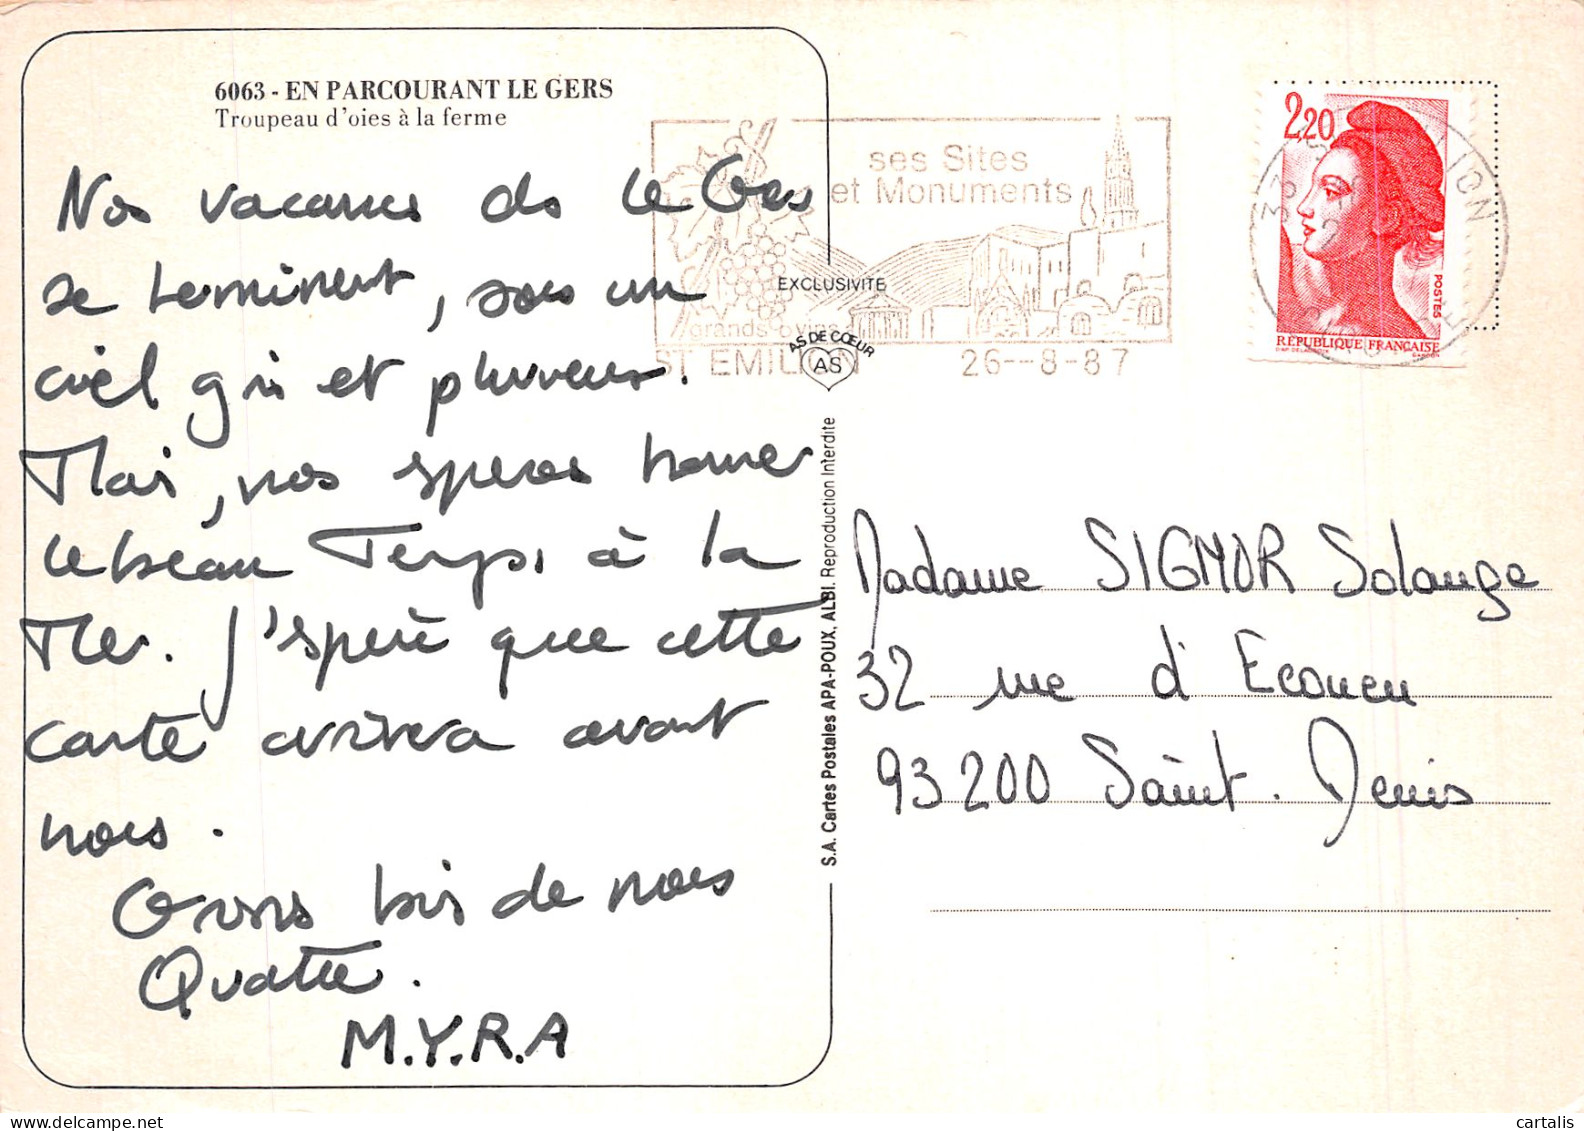 6063 - EN PARCOURANT LE GERS
Troupeau d'oies à la ferme
Nos vacances ds le Gers
se terminent, sous un
ciel gris et pluvieux.
Mais, nous
le beau Temps, à la
Mer. J'espère que cette
carte arrivera avant
nous.
Gros bis de nous
Quatre.
M.Y.R.A
ses Sites
et Monuments
grands vins
ST EMILION 26--8-87
EXCLUSIVITE
AS DE CŒUR
AS
S.A. Cartes Postales APA-POUX, ALBI. Reproduction Interdite
2,20
POSTES
RÉPUBLIQUE FRANÇAISE
Madame SIGMOR Solange
32 rue d'Ecouen
93200 Saint. Denis
cartalis